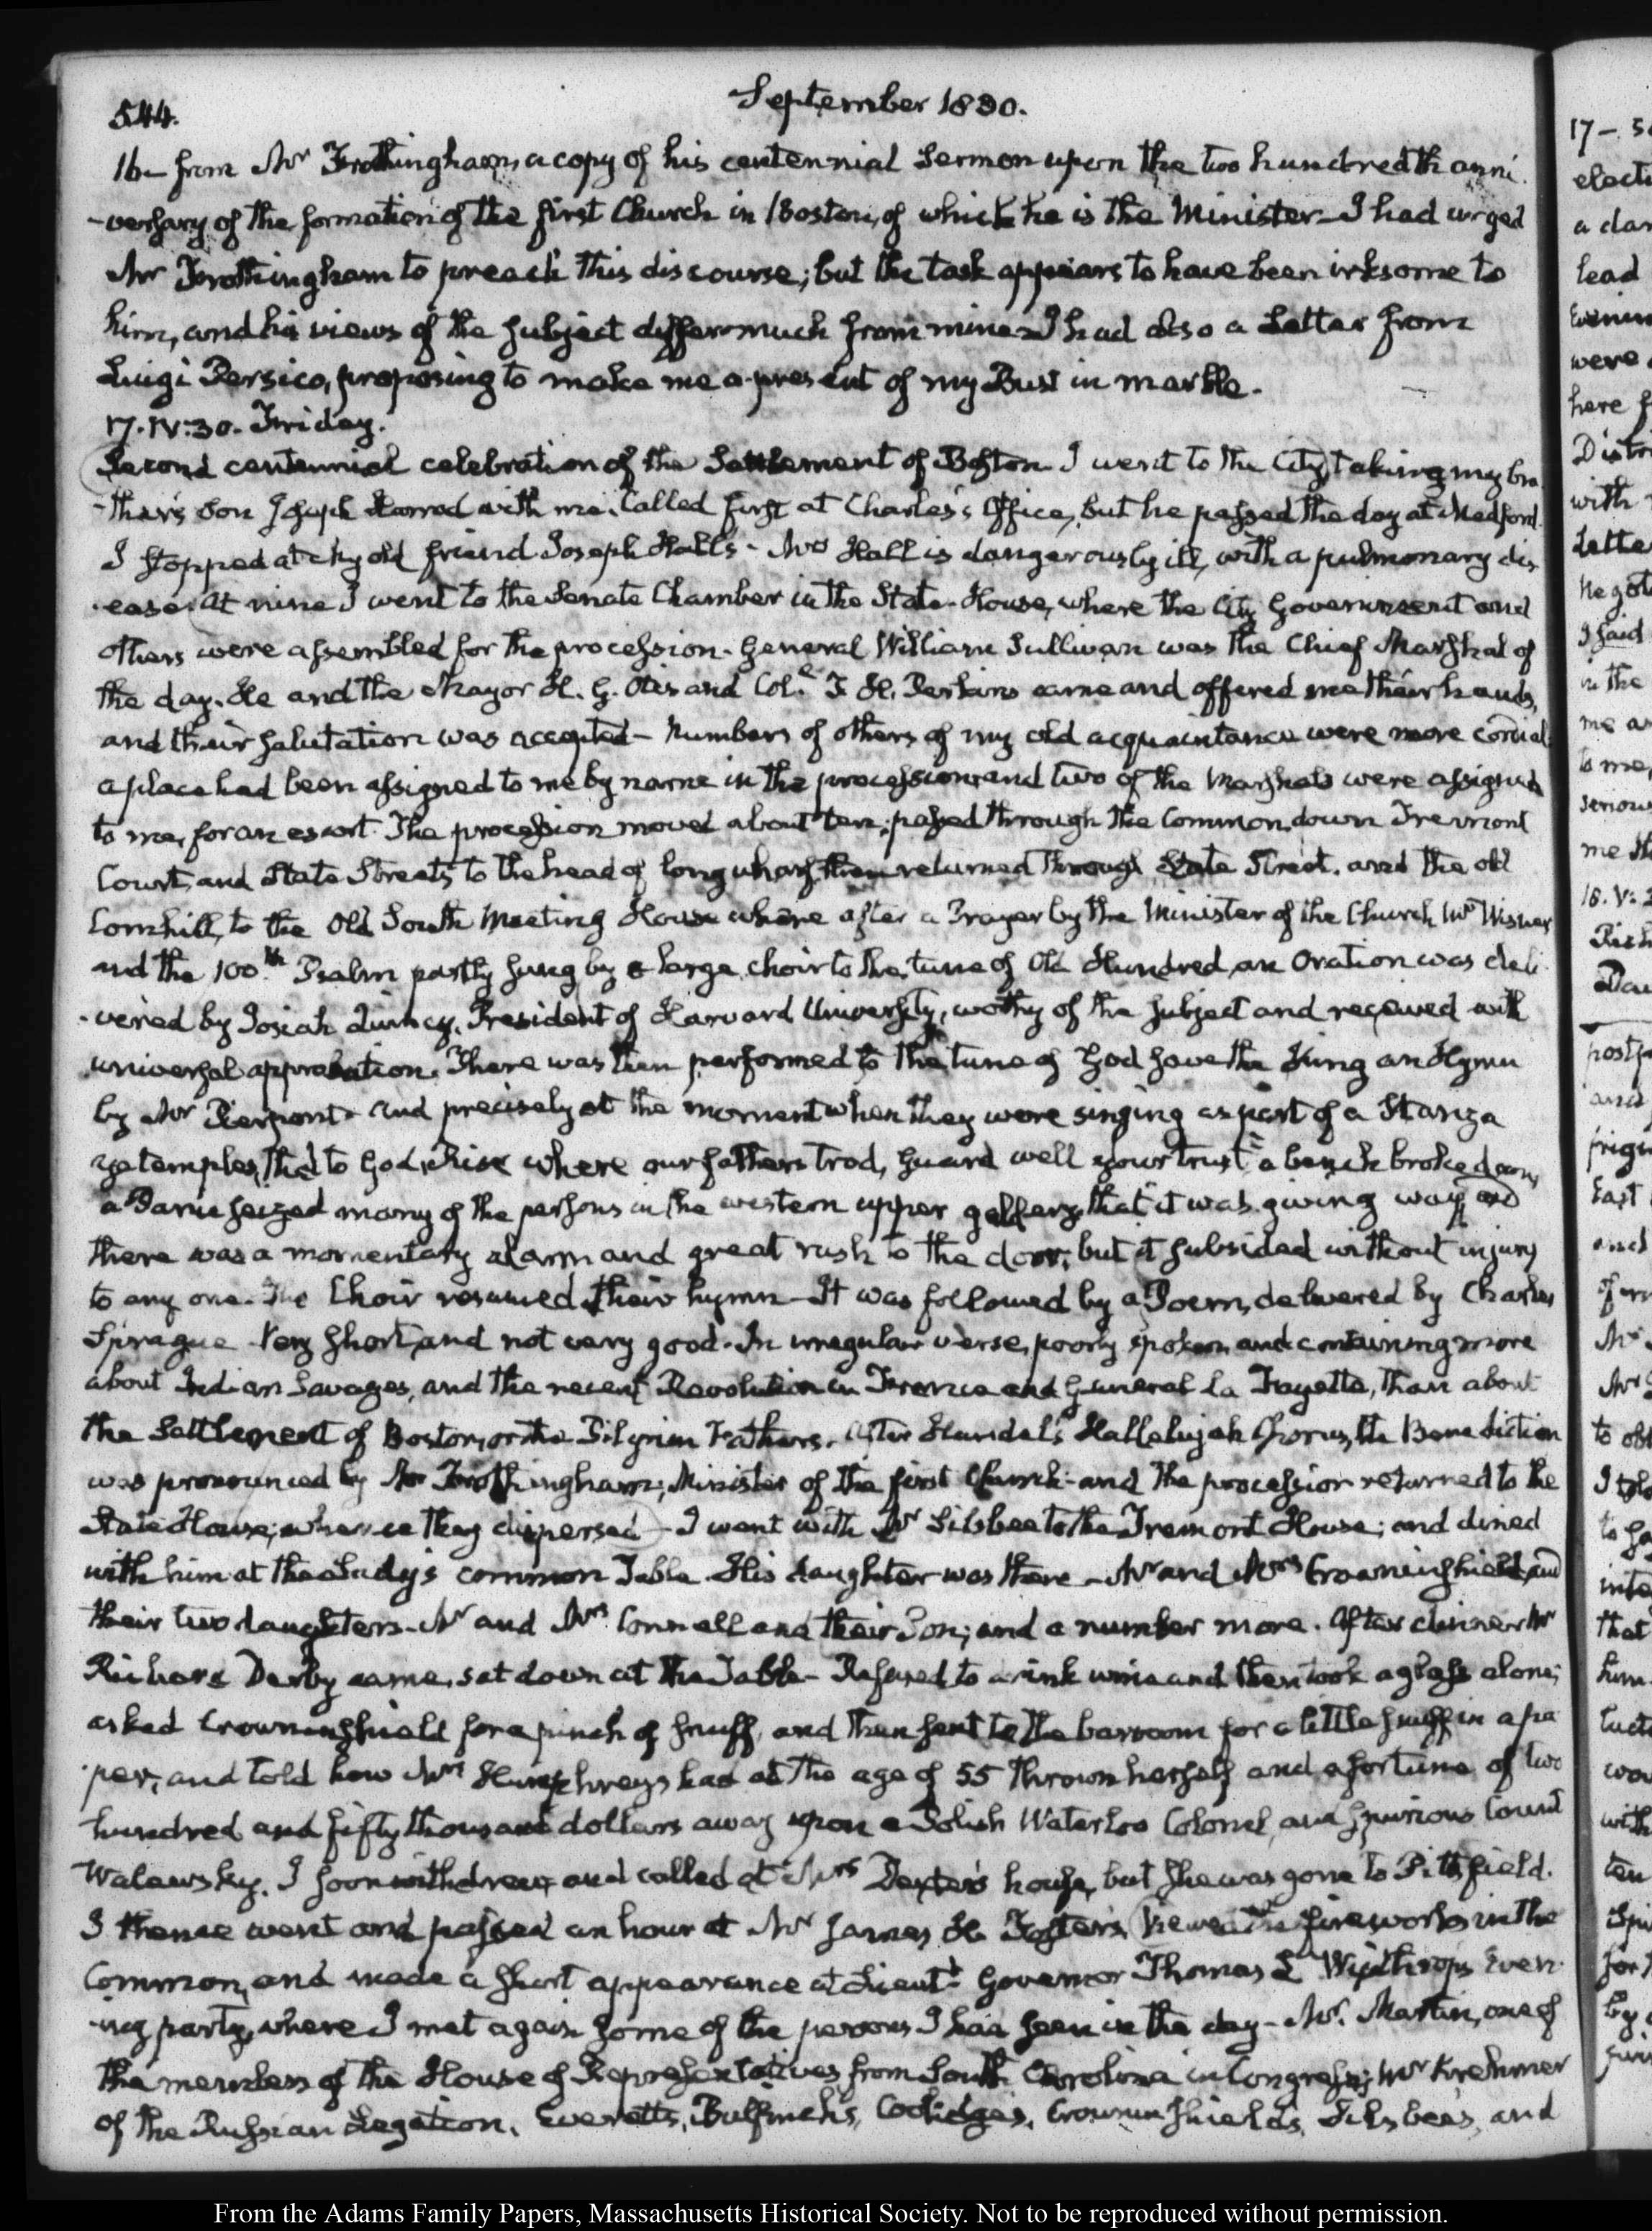 544.
September 1830.
16— from Mr Frothingham, a copy of his centennial Sermon upon the two hundredth anni
-versary of the formation of the first Church in Boston, of which he is the Minister— I had urged
Mr Frothingham to preach this discourse; but the task appears to have been irksome to
him, and his views of the subject differ much from mine— I had also a Letter from
Luigi Persico, proposing to make me a present of my Bust in marble.
17. IV:30. Friday.
Second centennial celebration of the Settlement of Boston. I went to the City, taking my bro
-ther's Son Joseph Harrod with me. Called first at Charles's Office, but he passed the day at Medford.
I stopped at my old friend Joseph Hall's - Mrs Hall is dangerously ill, with a pulmonary dis
-ease. At nine I went to the Senate Chamber in the State-House, where the City Government and
others were assembled for the procession. General William Sullivan was the Chief Marshal of
the day. He and the Mayor H. G. Otis and Coll. T. H. Perkins came and offered me their hands,
and their salutation was accepted— Numbers of others of my old acquaintance were more cordial
a place had been assigned to me by name in the procession and two of the Marshals were assigned
to me, for an escort. The procession moved about ten; passed through the Common, down Tremont
Court, and State Streets to the head of long wharf, then returned through State Street. and the old
Cornhill, to the Old South Meeting House where after a Prayer by the Minister of the Church Mr Wisner
and the 100.th Psalm partly sung by a large choir to the tune of Old Hundred, an Oration was deli
-vered by Josiah Quincy, President of Harvard University, worthy of the subject and received with
universal approbation. There was then performed to the tune of God save the King an Hymn
by Mr Pierpont— and precisely at the moment when they were singing as part of a Stanza
"ye temples, that to God Rise where our fathers trod, Guard well your trust" a bench broke down,
a Panic seized many of the persons in the western upper gallery, that it was giving way, and
there was a momentary alarm and great rush to the door; but it subsided without injury
to any one. The Choir resumed their hymn— It was followed by a Poem, delivered by Charles
Sprague Very short, and not very good. In irregular verse, poorly spoken and containing more
about Indian Savages, and the recent Revolution in France and General la Fayette, than about
the Settlement of Boston, or the Pilgrim Fathers. After Handel's Hallelujah Chorus, the Benediction
was pronounced by Mr Frothingham; Minister of the first Church— and the procession returned to the
State House; whence they dispersed— I went with Mr Silsbee to the Tremont House; and dined
with him at the Lady's common Table. His daughter was there— Mr and Mrs Crowninshield, and
their two daughters— Mr and Mrs Connell and their Son; and a number more. After dinner Mr
Richard Derby came, sat down at the Table— Refused to drink wine and then took a glass alone;
asked Crowninshield for a pinch of snuff, and then sent to the barroom for a little snuff in a pa
-per; and told how Mrs Humphreys had at the age of 55 thrown herself and a fortune of two
hundred and fifty thousand dollars away upon a Polish Waterloo Colonel, and spurious Count
Walewsky. I soon withdrew, and called at Mrs Dexter's house, but she was gone to Pittsfield.
I thence went and passed an hour at Mr James H. Foster's. Viewed the fireworks in the
Common, and made a short appearance at Lieutt Governor Thomas L. Winthrop's Even
-ing party, where I met again some of the persons I had seen in the day— Mr. Martin, one of
the members of the House of Representatives from South Carolina in Congress; Mr Krehmer
of the Russian Legation. Everetts, Bulfinch's, Coolidges, Crowninshields, Silsbee's, and
From the Adams Family Papers, Massachusetts Historical Society. Not to be reproduced without permission.